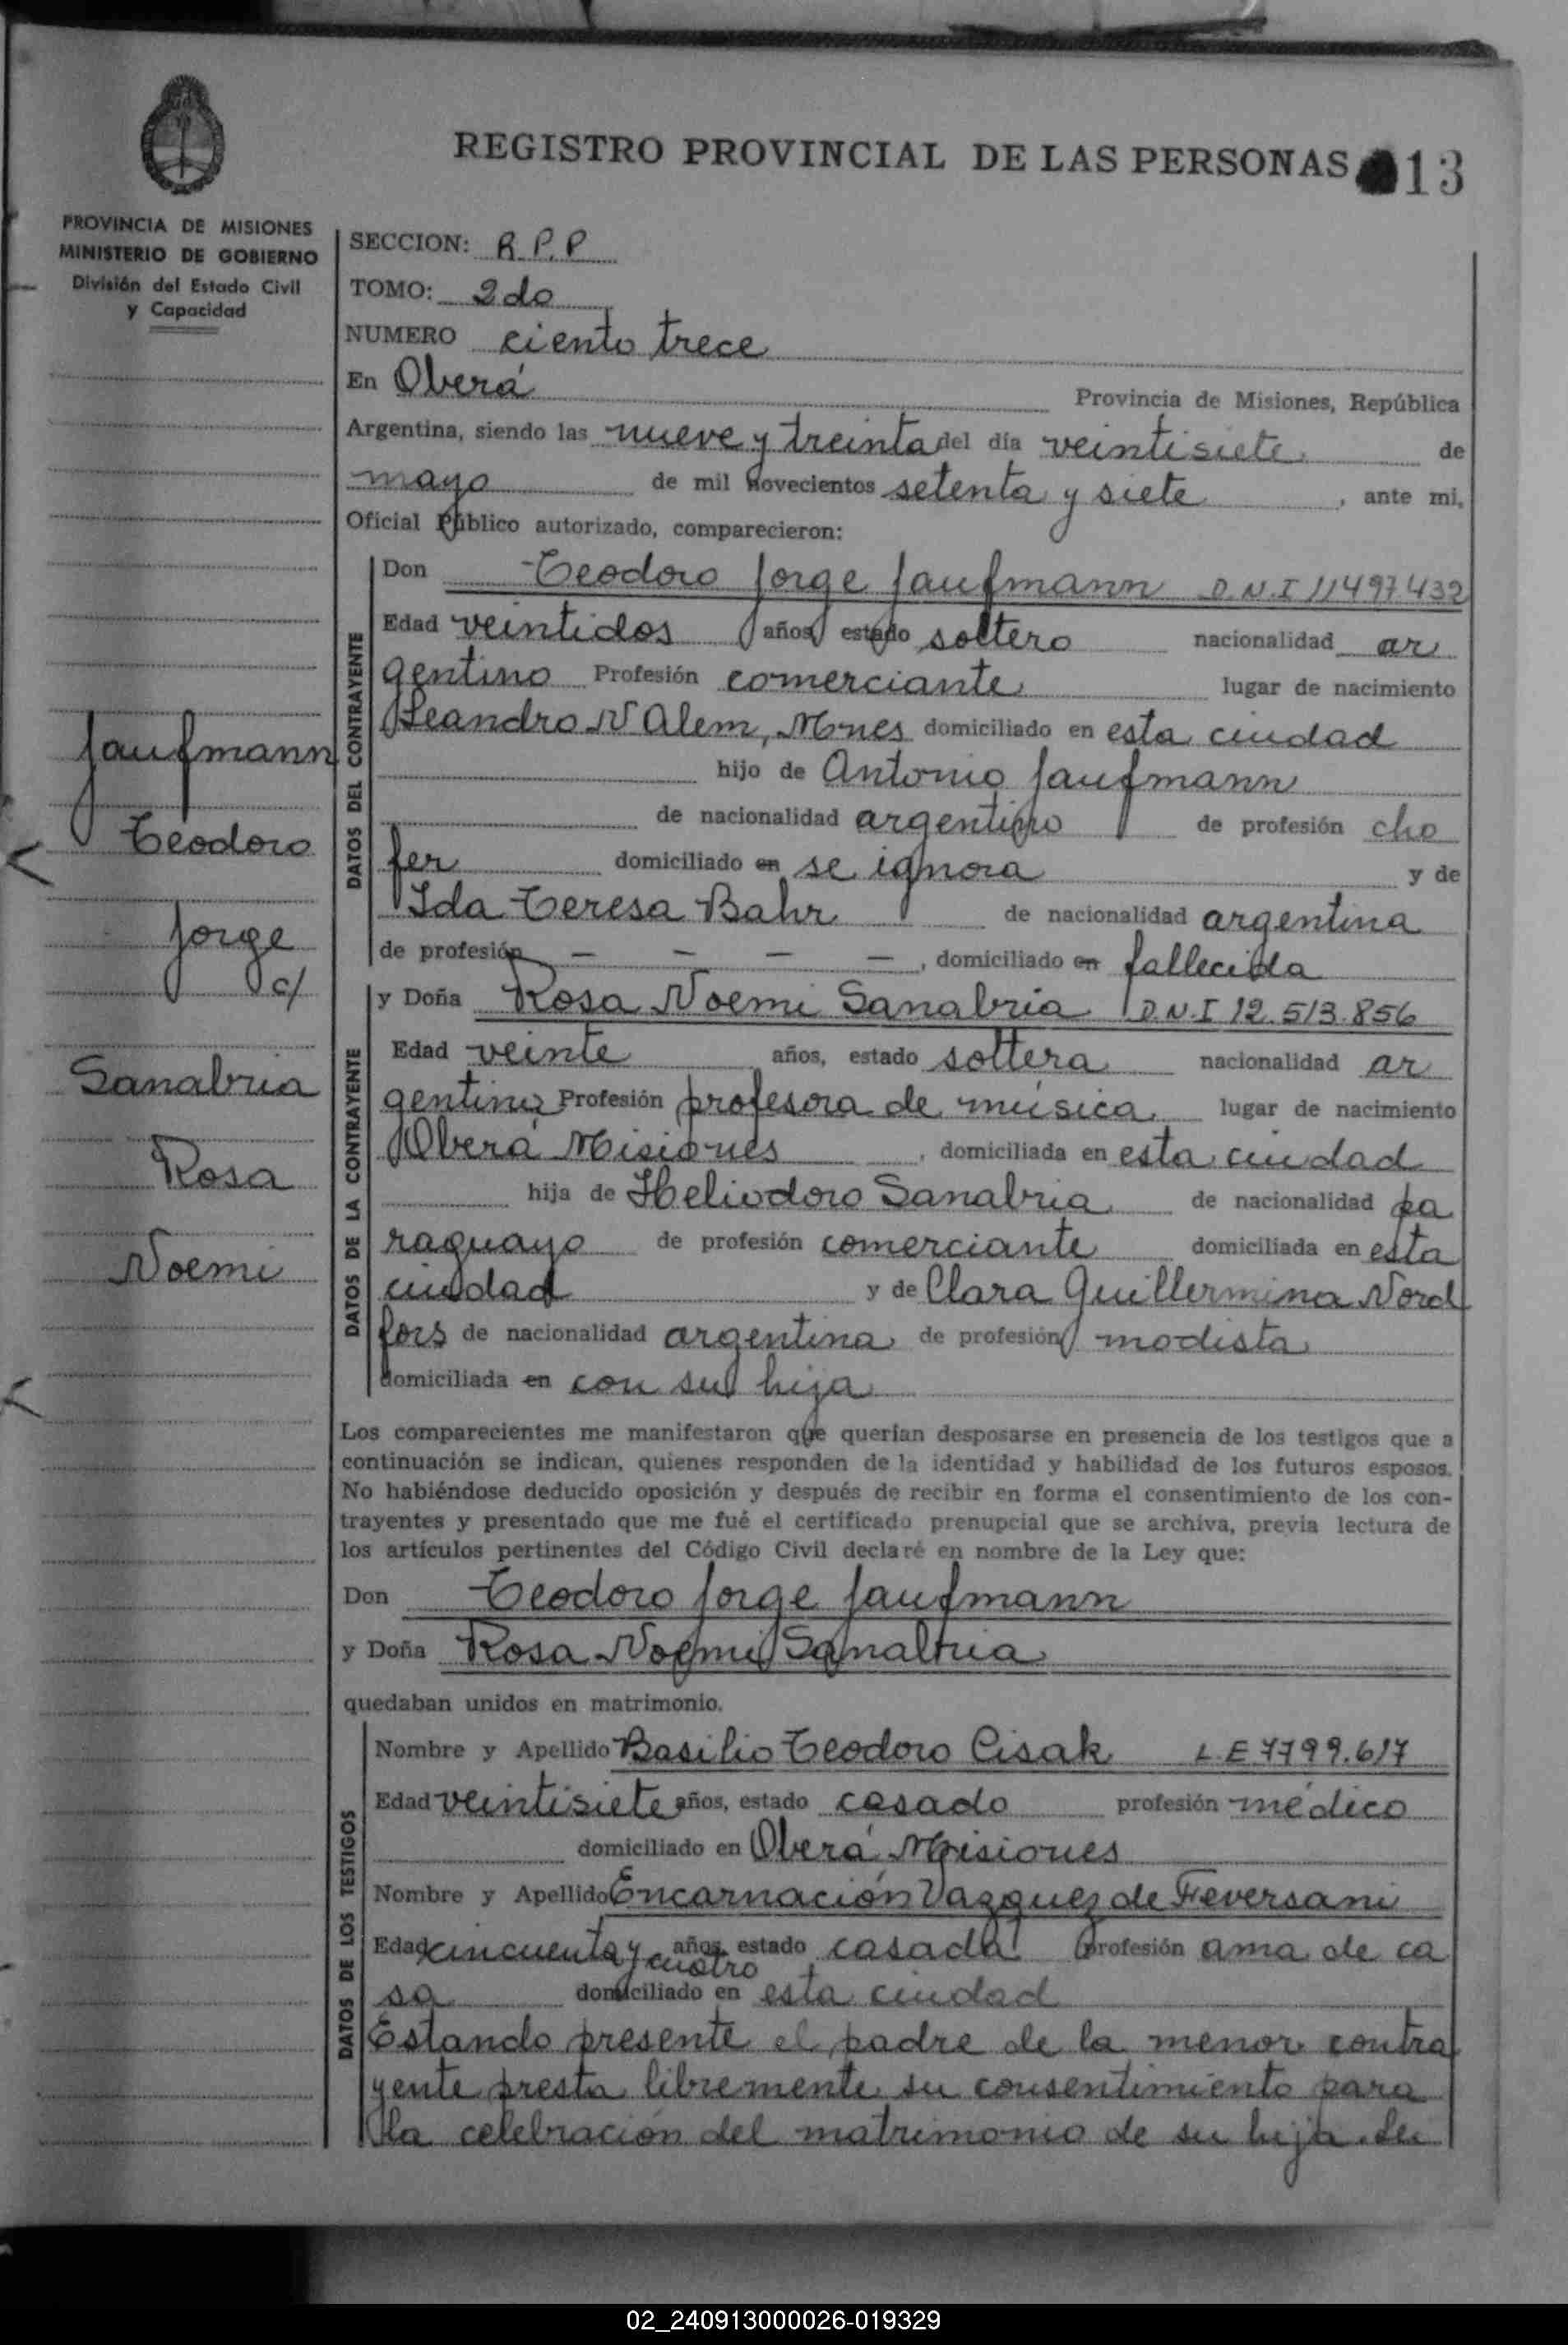 REGISTRO PROVINCIAL DE LAS PERSONAS 13
PROVINCIA DE MISIONES
MINISTERIO DE GOBIERNO
División del Estado Civil
y Capacidad
Jaufmann
Teodoro
Jorge
c/
Sanabria
Rosa
Noemi
SECCION: R.P.P
TOMO: 2do
NUMERO ciento trece
En Oberá Provincia de Misiones, República
Argentina, siendo las nueve y treinta del día veintisiete de
mayo de mil novecientos setenta y siete, ante mi,
Oficial Público autorizado, comparecieron:
DATOS DEL CONTRAYENTE
Don Teodoro Jorge Jaufmann D.N.I 11497.432
Edad veintidos años, estado soltero nacionalidad ar
gentino Profesión comerciante lugar de nacimiento
Leandro N Alem, Mnes domiciliado en esta ciudad
hijo de Antonio Jaufmann
de nacionalidad argentino de profesión cho
fer domiciliado en se ignora y de
Ida Teresa Bahr de nacionalidad argentina
de profesión – – – –, domiciliado en fallecida
DATOS DE LA CONTRAYENTE
y Doña Rosa Noemi Sanabria D.N.I 12.513.856
Edad veinte años, estado soltera nacionalidad ar
gentina Profesión profesora de música lugar de nacimiento
Oberá Misiones, domiciliada en esta ciudad
hija de Heliodoro Sanabria de nacionalidad pa
raguayo de profesión comerciante domiciliada en esta
ciudad y de Clara Guillermina Nord
fors de nacionalidad argentina de profesión modista
domiciliada en con su hija
Los comparecientes me manifestaron que querían desposarse en presencia de los testigos que a
continuación se indican, quienes responden de la identidad y habilidad de los futuros esposos.
No habiéndose deducido oposición y después de recibir en forma el consentimiento de los con-
trayentes y presentado que me fué el certificado prenupcial que se archiva, previa lectura de
los artículos pertinentes del Código Civil declaré en nombre de la Ley que:
Don Teodoro Jorge Jaufmann
y Doña Rosa Noemi Sanabria
quedaban unidos en matrimonio.
DATOS DE LOS TESTIGOS
Nombre y Apellido Basilio Teodoro Cisak L.E 7799.617
Edad veintisiete años, estado casado profesión médico
domiciliado en Oberá Misiones
Nombre y Apellido Encarnación Vazquez de Feversani
Edad cincuenta y cuatro años, estado casada profesión ama de ca
sa domiciliado en esta ciudad
Estando presente el padre de la menor contra
yente presta libremente su consentimiento para
la celebración del matrimonio de su hija. Lei
02_240913000026-019329